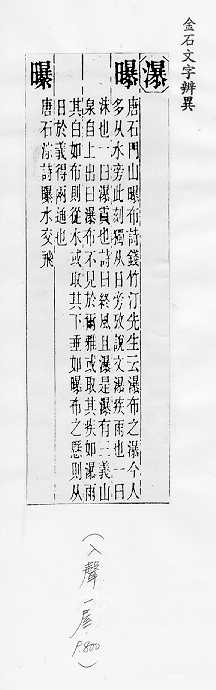 金石文字辨異
瀑
曝
唐石門山曝布詩錢竹汀先生云瀑布之瀑今人
多从水旁此刻獨从日旁攷說文瀑疾雨也一曰
沫也一曰瀑霣也詩曰終風且瀑是瀑有三義山
泉自上出曰瀑布不見於爾雅或取其疾如瀑雨
其白如布則從水或取其下垂如曝布之懸則从
日於義得兩通也
曝 唐石淙詩曝水交飛
(入聲一屋 P.800)